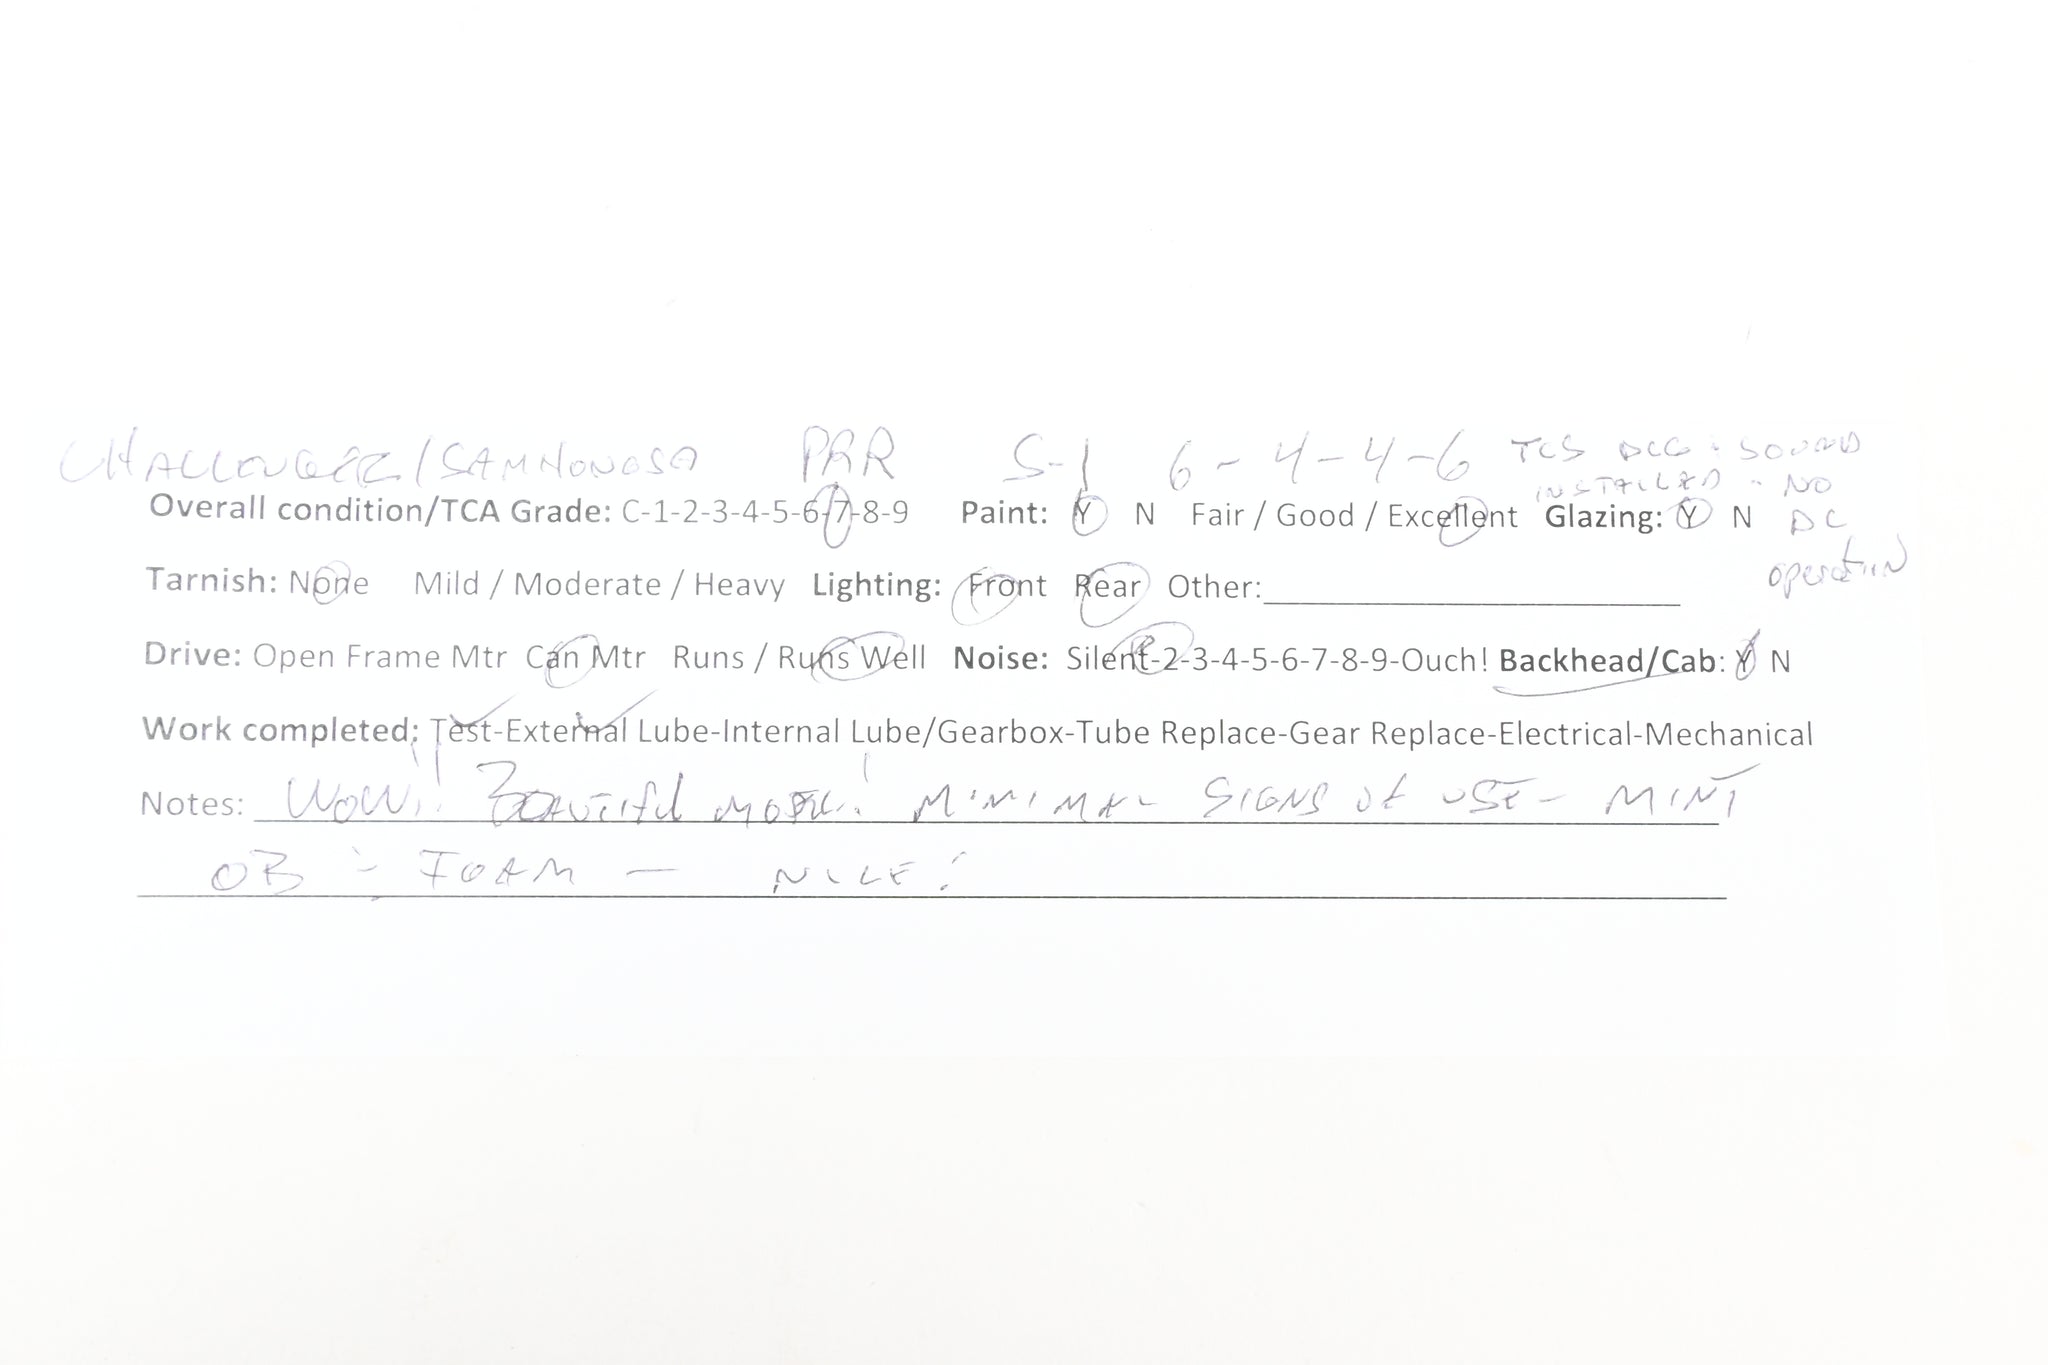 CHALLENGER/SAMHONGSA PRR S-1 6-4-4-6 TCS DCC & SOUND
INSTALLED - NO
Overall condition/TCA Grade: C-1-2-3-4-5-6-7-8-9 Paint: Y N Fair / Good / Excellent Glazing: Y N DC
operation
Tarnish: None Mild / Moderate / Heavy Lighting: Front Rear Other:
Drive: Open Frame Mtr Can Mtr Runs / Runs Well Noise: Silent-2-3-4-5-6-7-8-9-Ouch! Backhead/Cab: Y N
Work completed: Test-External Lube-Internal Lube/Gearbox-Tube Replace-Gear Replace-Electrical-Mechanical
Notes: WOW!! Beautiful model! MINIMAL SIGNS of USE - MINT
OB - FOAM - NICE!